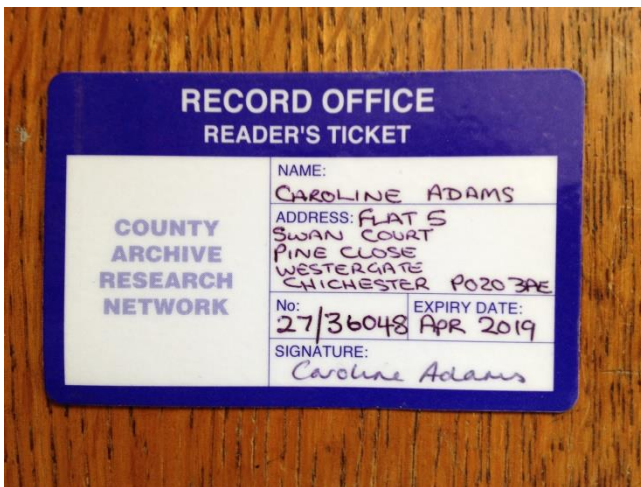 RECORD OFFICE
READER'S TICKET
COUNTY
ARCHIVE
RESEARCH
NETWORK
NAME:
CAROLINE ADAMS
ADDRESS: FLAT 5
SWAN COURT
PINE CLOSE
WESTERGATE
CHICHESTER PO20 3AE
No:
27/36048
EXPIRY DATE:
APR 2019
SIGNATURE:
Caroline Adams